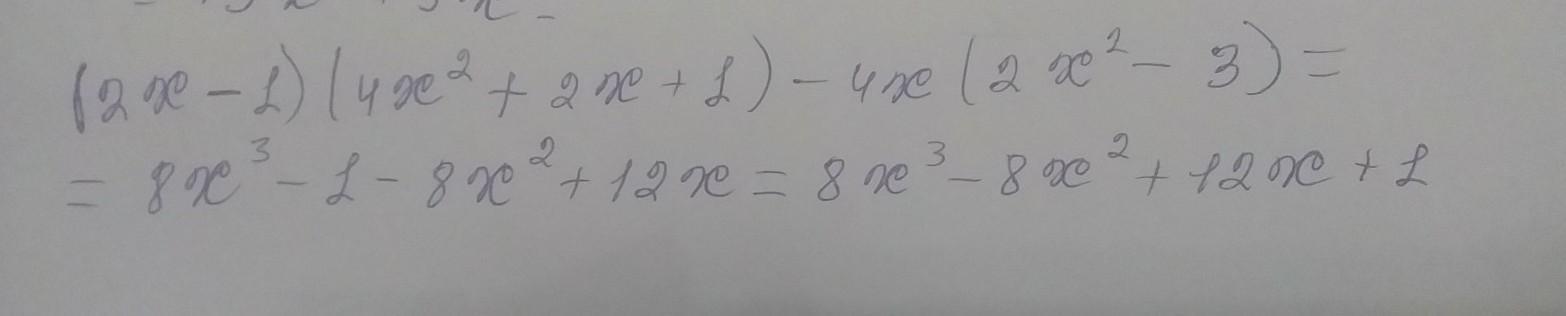 (2x-1)(4x²+2x+1)-4x(2x²-3)=
=8x³-1-8x²+12x=8x³-8x²+12x+1